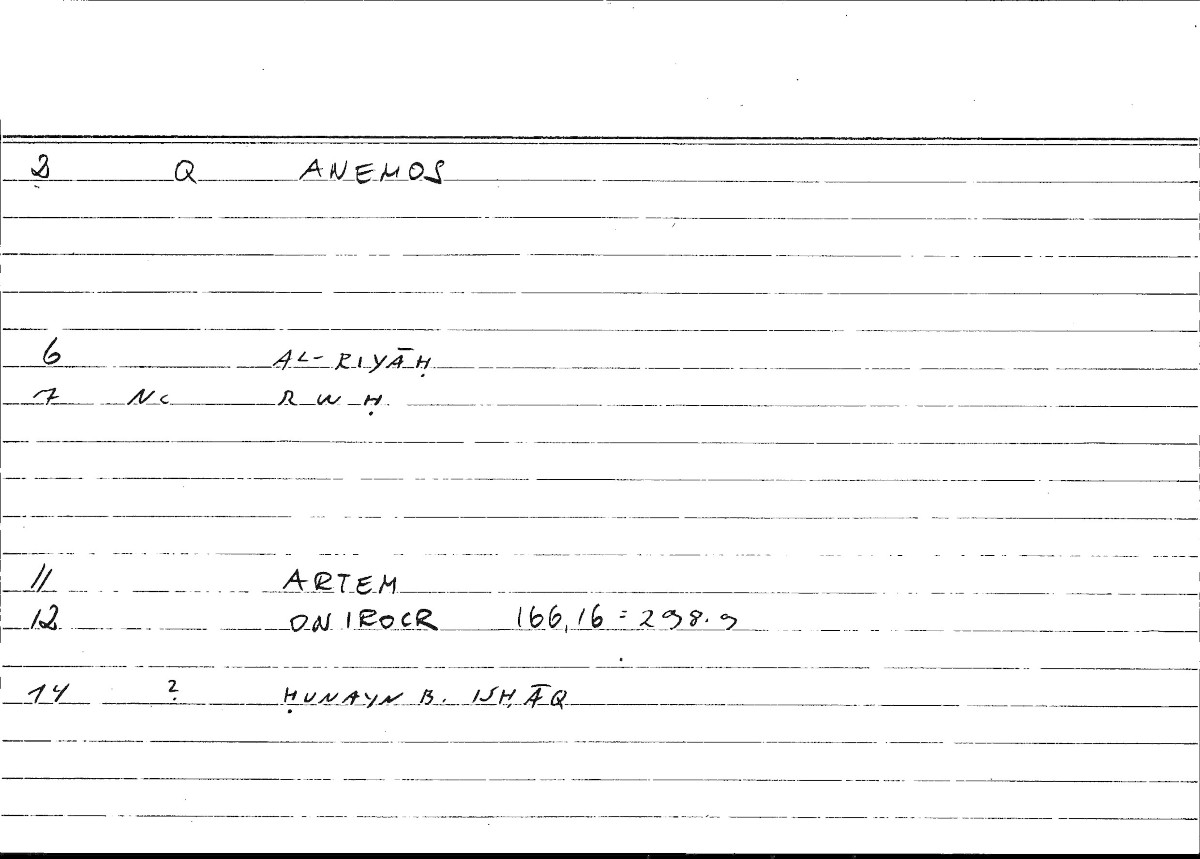 2 Q ANEMOS
6 AL-RIYĀḤ
7 Nc R W Ḥ
11 ARTEM
12 ONIROCR 166,16 = 298.9
14 ? ḤUNAYN B. ISḤĀQ